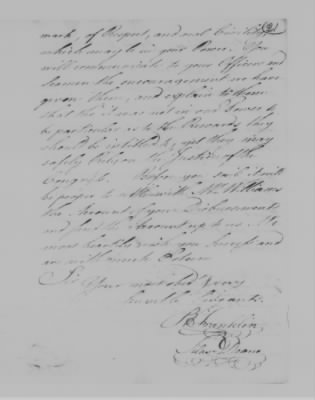 mark, of Respect, and real Civility
which may be in your Power. You
will communicate to your Officers and
Seamen the encouragement we have
given them, and explain to them
that tho' it was not in our Power to
be particular as to the Rewards they
should be intitled to, yet they may
safely rely on the Justice of the
Congress. Before you sail it will
be proper to settle with Mr. Williams
the Account of your Disbursements
and send the Account up to us. We
most heartily wish you Success and
are with much Esteem
Sir Your most obed. & very
humble Servants.
B Franklin
Silas Deane